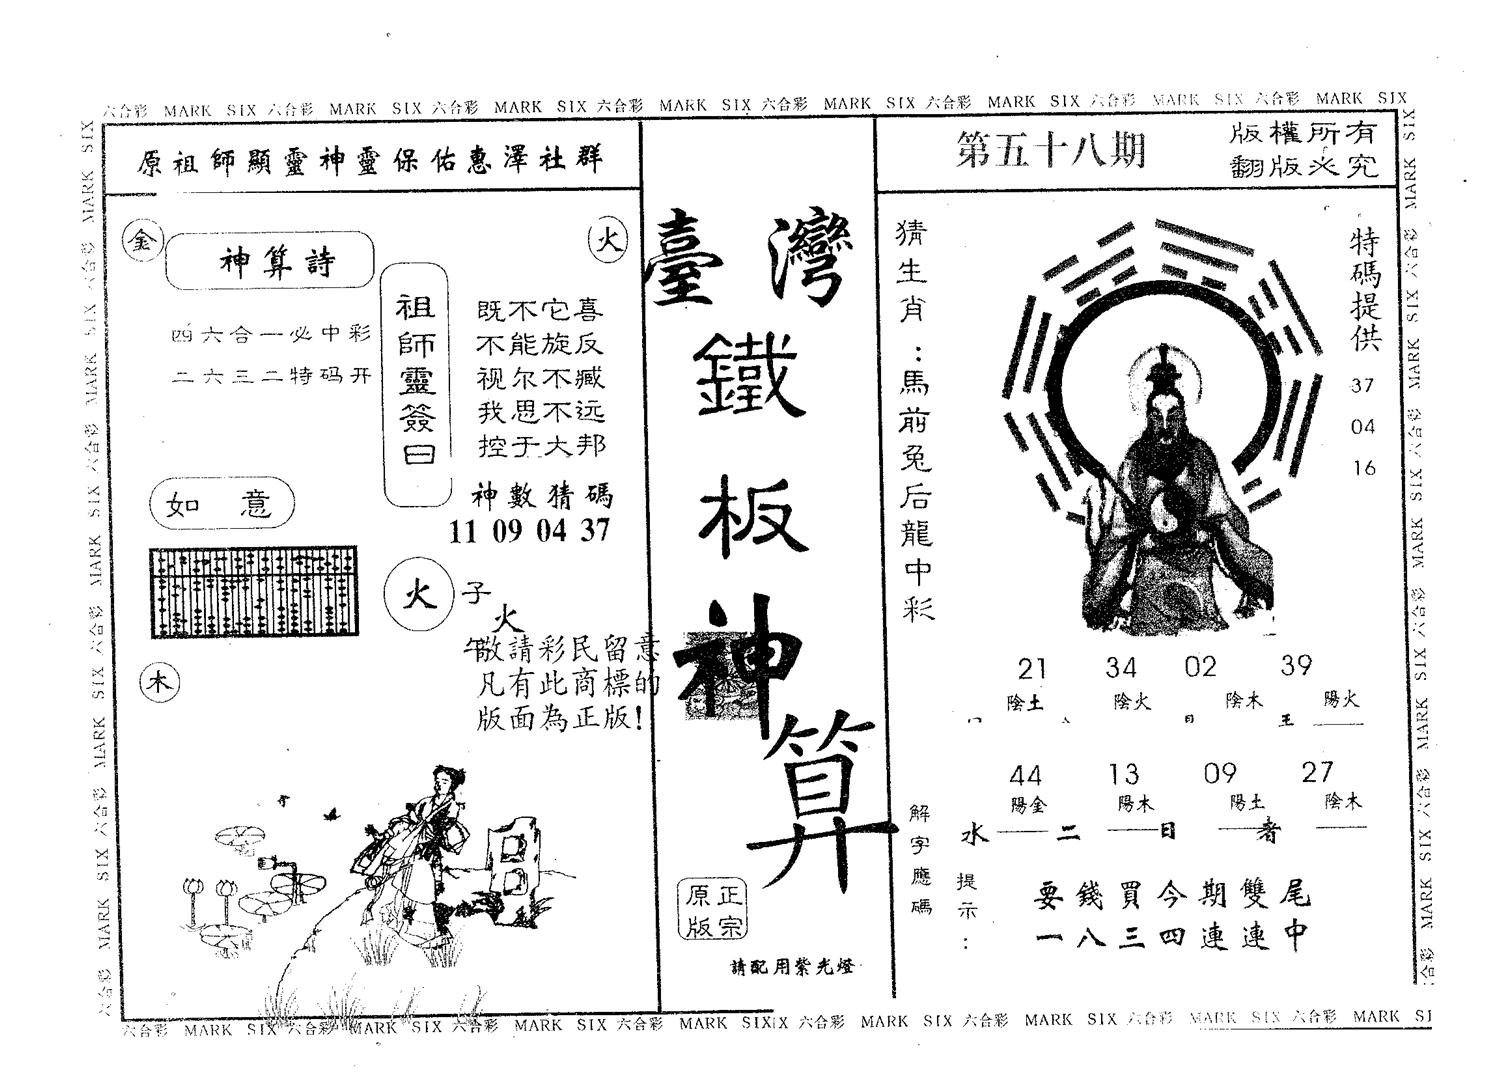 六合彩 MARK SIX 六合彩 MARK SIX 六合彩 MARK SIX 六合彩 MARK SIX 六合彩 MARK SIX 六合彩 MARK SIX 六合彩 MARK SIX 六合彩 MARK SIX
原祖師顯靈神靈保佑惠澤社群
金
神算詩
火
四六合一必中彩
二六三二特码开
祖師靈簽曰
既不它喜
不能旋反
视尔不臧
我思不远
控于大邦
神數猜碼
11 09 04 37
如意
火
子
火
午
敬請彩民留意
凡有此商標的
版面為正版!
木
臺灣
鐵
板
神
算
正宗
原版
請配用紫光燈
第五十八期
版權所有
翻版必究
猜生肖:馬前兔后龍中彩
特碼提供
37
04
16
21 34 02 39
陰土 陰火 陰木 陽火
日 王
44 13 09 27
陽金 陽木 陽土 陰木
水 二 日 者
解字應碼
提示:
要錢買今期雙尾
一八三四連連中
六合彩 MARK SIX 六合彩 MARK SIX 六合彩 MARK SIX 六合彩 MARK SIX 六合彩 MARK SIX 六合彩 MARK SIX 六合彩 MARK SIX 六合彩 MARK SI